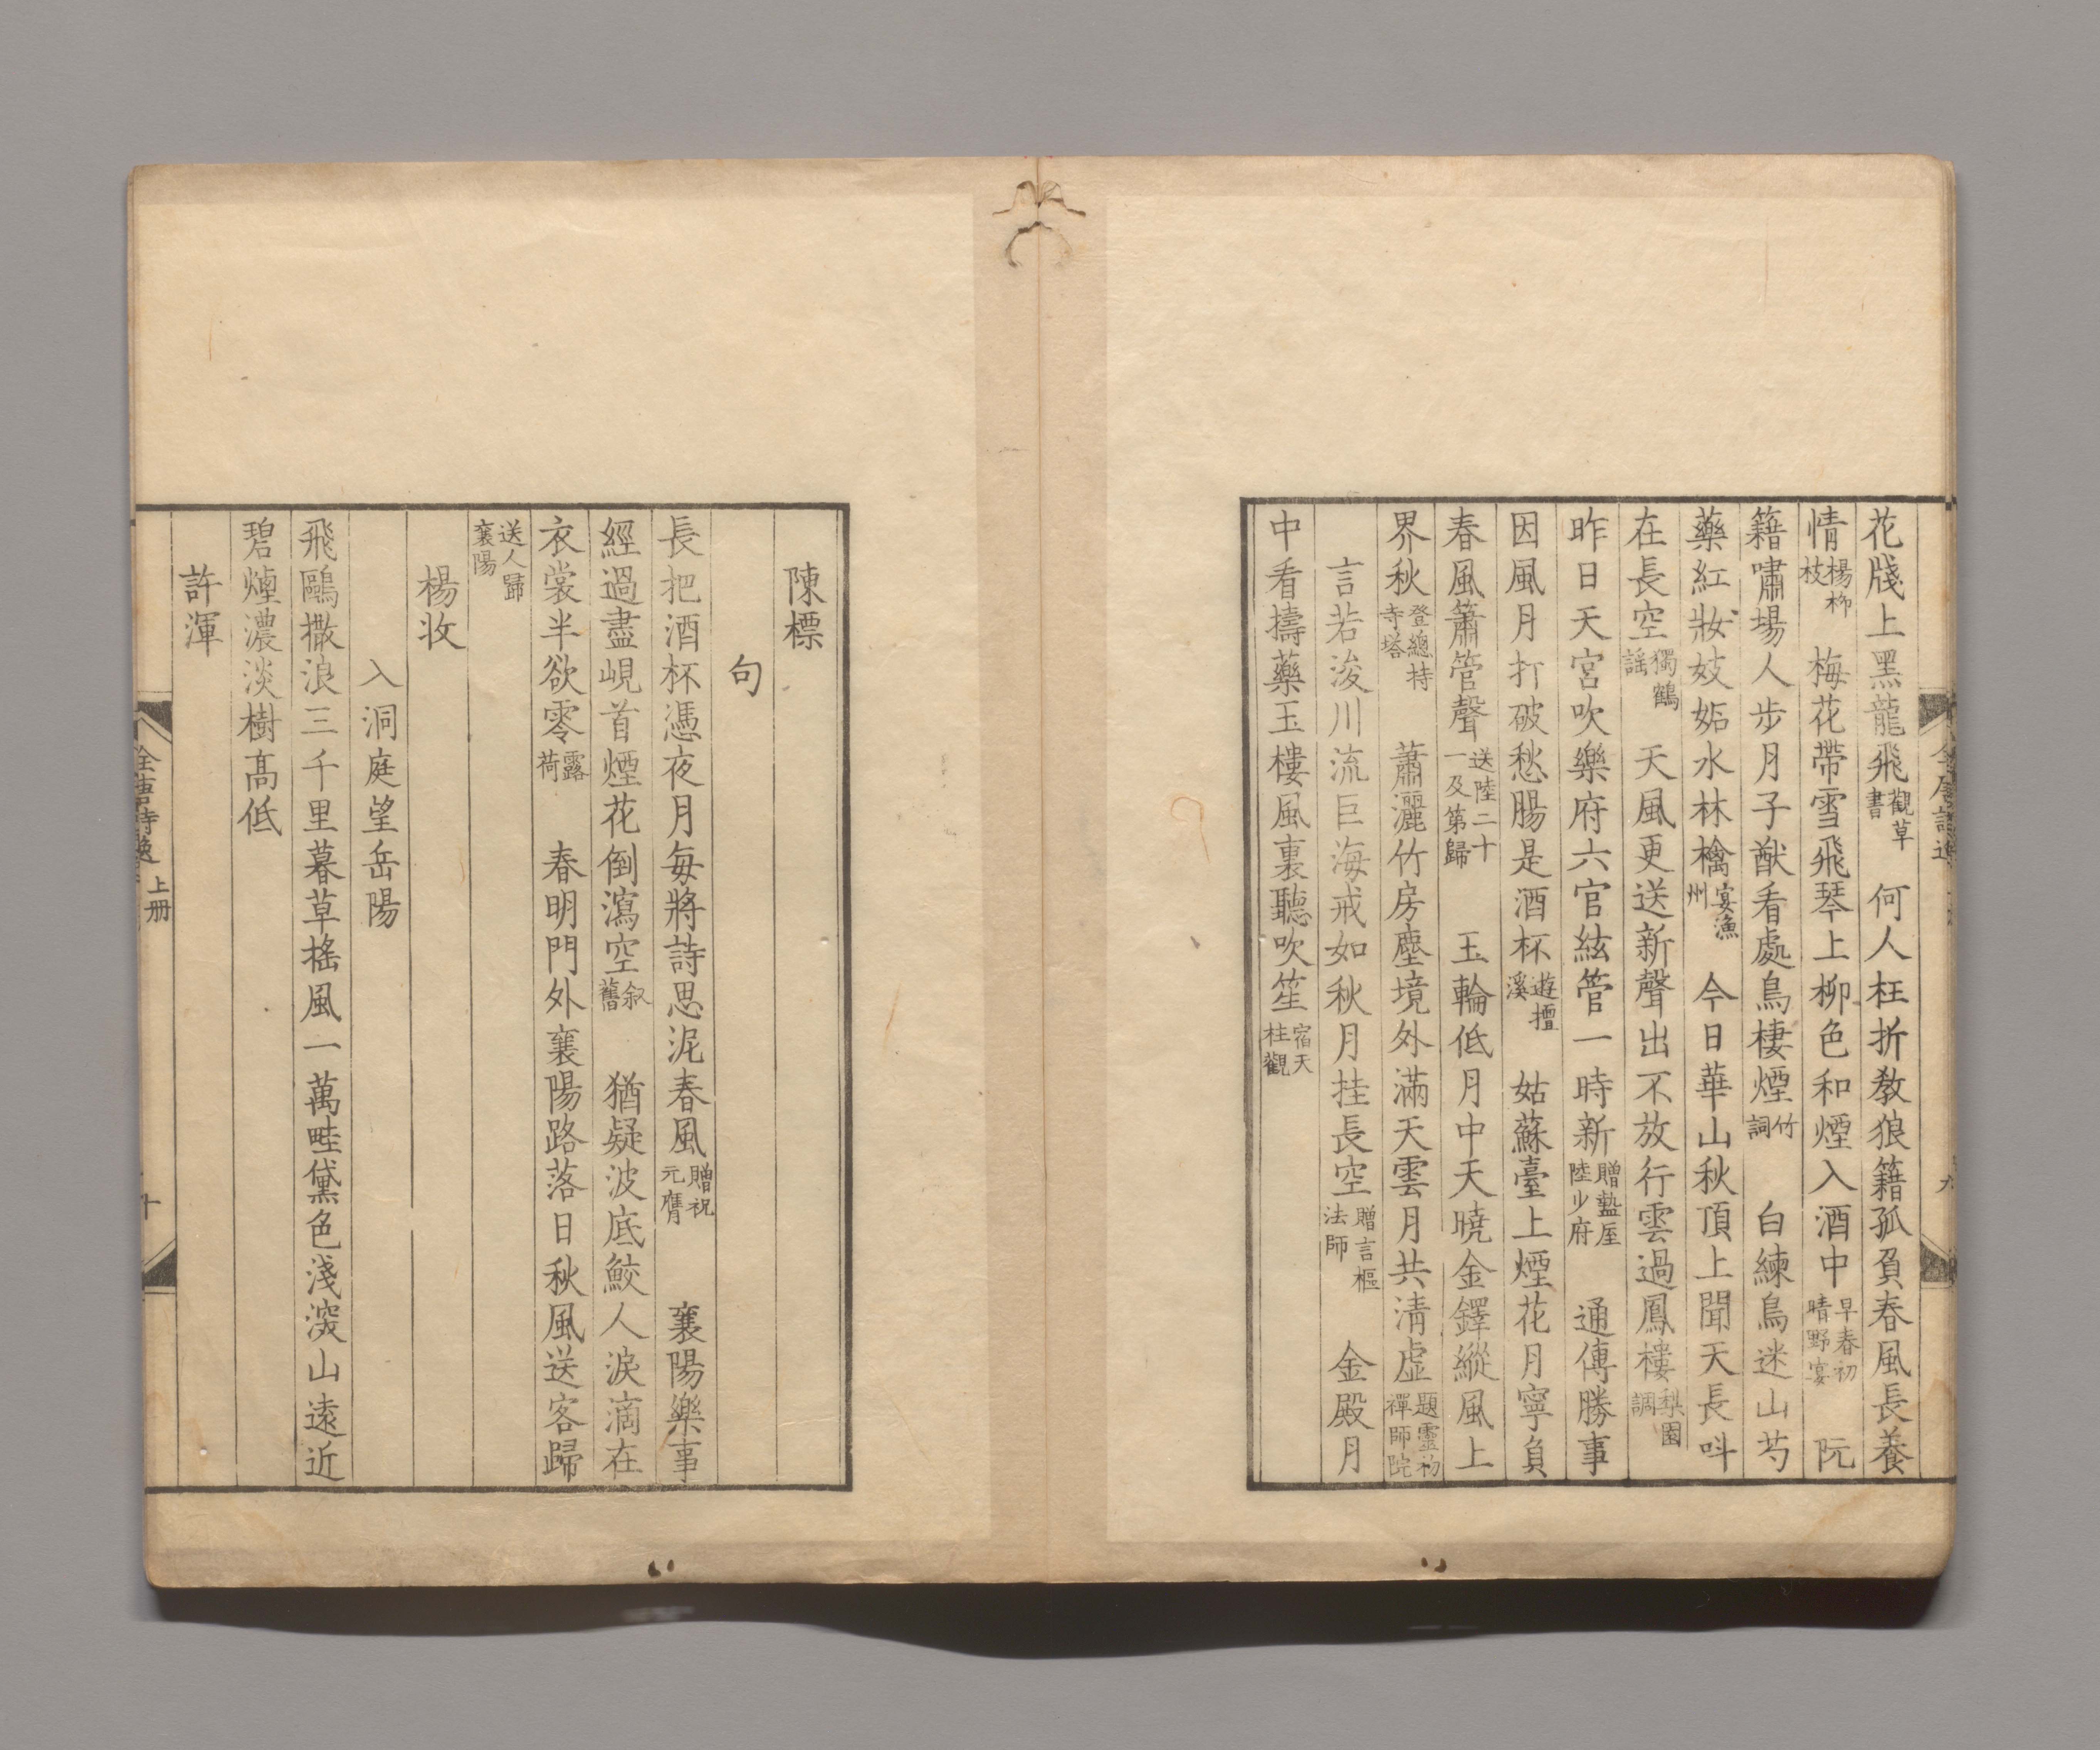 花牋上黑龍飛觀草書　何人枉折教狼籍孤負春風長養
情楊柳枝　梅花帶雪飛琴上柳色和煙入酒中早春初晴野宴　阮
籍嘯場人步月子猷看處鳥棲煙竹詞　白練鳥迷山芍
藥紅妝妓妬水林檎宴漁州　今日華山秋頂上聞天長呌
在長空獨鶴謡　天風更送新聲出不放行雲過鳳樓梨園調
昨日天宮吹樂府六官絃管一時新贈盩厔陸少府　通傳勝事
因風月打破愁腸是酒杯遊檀溪　姑蘇臺上煙花月寧負
春風簫管聲送陸二十一及第歸　玉輪低月中天曉金鐸縱風上
界秋登總持寺塔　蕭灑竹房塵境外滿天雲月共清虛題靈初禪師院
言若浚川流巨海戒如秋月挂長空贈言樞法師　金殿月
中看擣藥玉樓風裏聽吹笙宿天柱觀
陳標
句
長把酒杯憑夜月每將詩思泥春風贈祝元膺　襄陽樂事
經過盡峴首煙花倒瀉空叙舊　猶疑波底鮫人淚滴在
衣裳半欲零露荷　春明門外襄陽路落日秋風送客歸
送人歸襄陽
楊收
入洞庭望岳陽
飛鷗撒浪三千里暮草搖風一萬畦黛色淺深山遠近
碧煙濃淡樹高低
許渾
全唐詩逸 上册
十